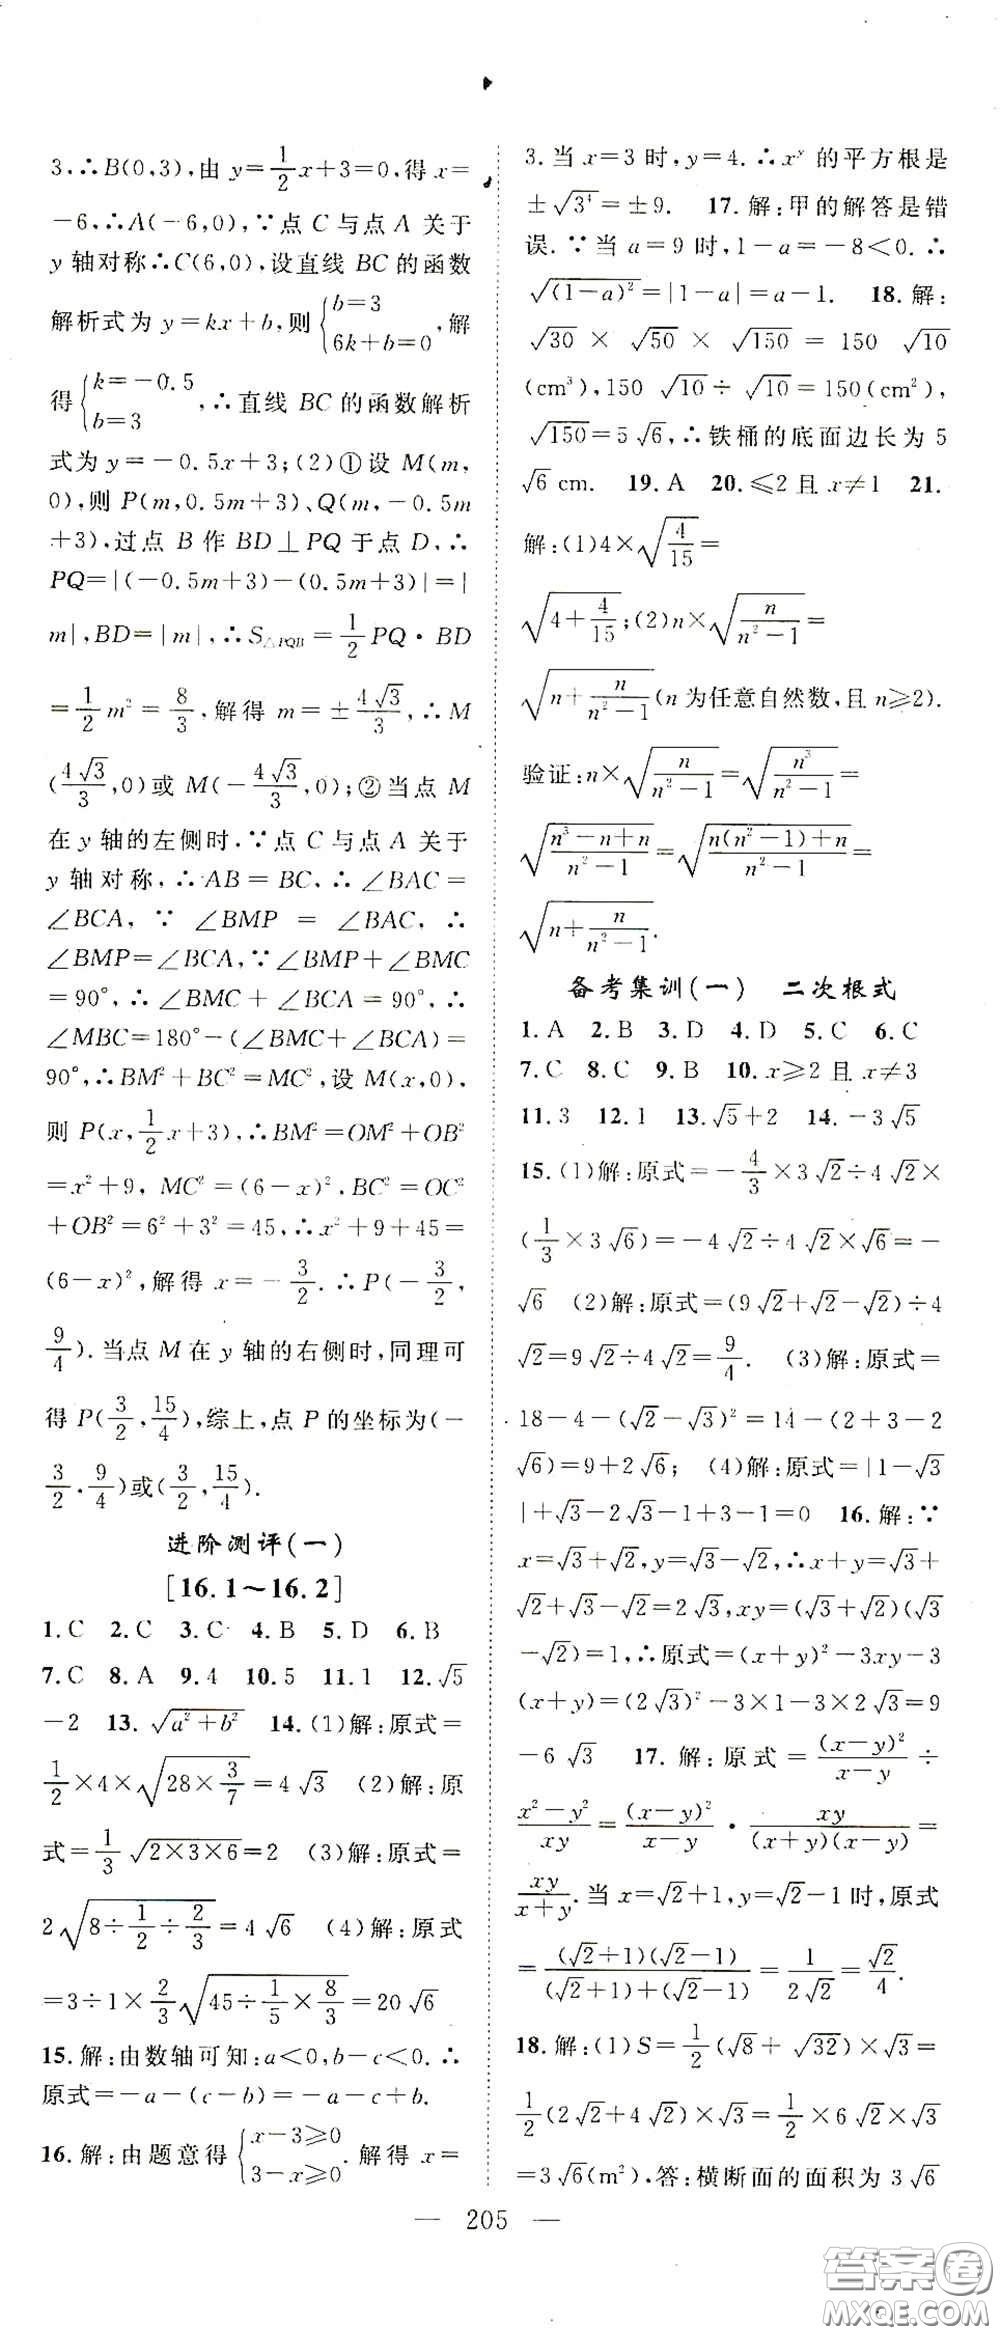 3.∴B(0,3),由 y=1/2x+3=0,得 x=
-6,∴A(-6,0),∵点 C 与点 A 关于
y 轴对称∴C(6,0),设直线 BC 的函数
解析式为 y=kx+b,则{b=3 6k+b=0,解
得{k=-0.5 b=3,∴直线 BC 的函数解析
式为 y=-0.5x+3;(2)①设 M(m,
0),则 P(m,0.5m+3)、Q(m,-0.5m
+3),过点 B 作 BD⊥PQ 于点 D,∴
PQ=|(-0.5m+3)-(0.5m+3)|=|
m|,BD=|m|,∴S△PQB=1/2PQ·BD
=1/2m²=8/3,解得 m=±4√3/3,∴M
(4√3/3,0)或 M(-4√3/3,0);②当点 M
在 y 轴的左侧时,∵点 C 与点 A 关于
y 轴对称,∴AB=BC,∴∠BAC=
∠BCA,∵∠BMP=∠BAC,∴
∠BMP=∠BCA,∵∠BMP+∠BMC
=90°,∴∠BMC+∠BCA=90°,∴
∠MBC=180°-(∠BMC+∠BCA)=
90°,∴BM²+BC²=MC²,设 M(x,0),
则 P(x,1/2x+3),∴BM²=OM²+OB²
=x²+9,MC²=(6-x)²,BC²=OC²
+OB²=6²+3²=45,∴x²+9+45=
(6-x)²,解得 x=-3/2.∴P(-3/2,
9/4).当点 M 在 y 轴的右侧时,同理可
得 P(3/2,15/4),综上,点 P 的坐标为(-
3/2,9/4)或(3/2,15/4).
进阶测评(一)
[16.1~16.2]
1.C 2.C 3.C 4.B 5.D 6.B
7.C 8.A 9.4 10.5 11.1 12.√5
-2 13.√(a²+b²) 14.(1)解:原式=
1/2×4×√(28×3/7)=4√3 (2)解:原
式=1/3√(2×3×6)=2 (3)解:原式=
2√(8÷1/2÷2/3)=4√6 (4)解:原式
=3÷1×2/3√(45÷1/5×8/3)=20√6
15.解:由数轴可知:a<0,b-c<0.∴
原式=-a-(c-b)=-a-c+b.
16.解:由题意得{x-3≥0 3-x≥0.解得 x=
3.当 x=3 时,y=4.∴xʸ 的平方根是
±√3⁴=±9. 17.解:甲的解答是错
误.∵当 a=9 时,1-a=-8<0.∴
√(1-a)²=|1-a|=a-1. 18.解:
√30×√50×√150=150√10
(cm³),150√10÷√10=150(cm²),
√150=5√6,∴铁桶的底面边长为 5
√6 cm. 19.A 20.≤2且 x≠1 21.
解:(1)4×√(4/15)=
√(4+4/15);(2)n×√(n/(n²-1))=
√(n+n/(n²-1))(n 为任意自然数,且 n≥2).
验证:n×√(n/(n²-1))=√(n³/(n²-1))=
√((n³-n+n)/(n²-1))=√((n(n²-1)+n)/(n²-1))=
√(n+n/(n²-1)).
备考集训(一) 二次根式
1.A 2.B 3.D 4.D 5.C 6.C
7.C 8.C 9.B 10.x≥2 且 x≠3
11.3 12.1 13.√5+2 14.-3√5
15.(1)解:原式=-4/3×3√2÷4√2×
(1/3×3√6)=-4√2÷4√2×√6=-
√6 (2)解:原式=(9√2+√2-√2)÷4
√2=9√2÷4√2=9/4. (3)解:原式=
18-4-(√2-√3)²=14-(2+3-2
√6)=9+2√6; (4)解:原式=|1-√3
|+√3-2√3-1+3-1=0 16.解:∵
x=√3+√2,y=√3-√2,∴x+y=√3
+√2+√3-√2=2√3,xy=(√3+√2)(√3
-√2)=1,∴原式=(x+y)²-3xy-3
(x+y)=(2√3)²-3×1-3×2√3=9
-6√3 17.解:原式=(x-y)²/(x-y)÷
(x²-y²)/xy=(x-y)²/(x-y)·xy/((x+y)(x-y))=
xy/(x+y).当 x=√2+1,y=√2-1时,原式
=(√2+1)(√2-1)/((√2+1)+(√2-1))=1/(2√2)=√2/4.
18.解:(1)S=1/2(√8+√32)×√3=
1/2(2√2+4√2)×√3=1/2×6√2×√3
=3√6(m²).答:横断面的面积为 3√6
— 205 —
答案卷
MXQE.COM